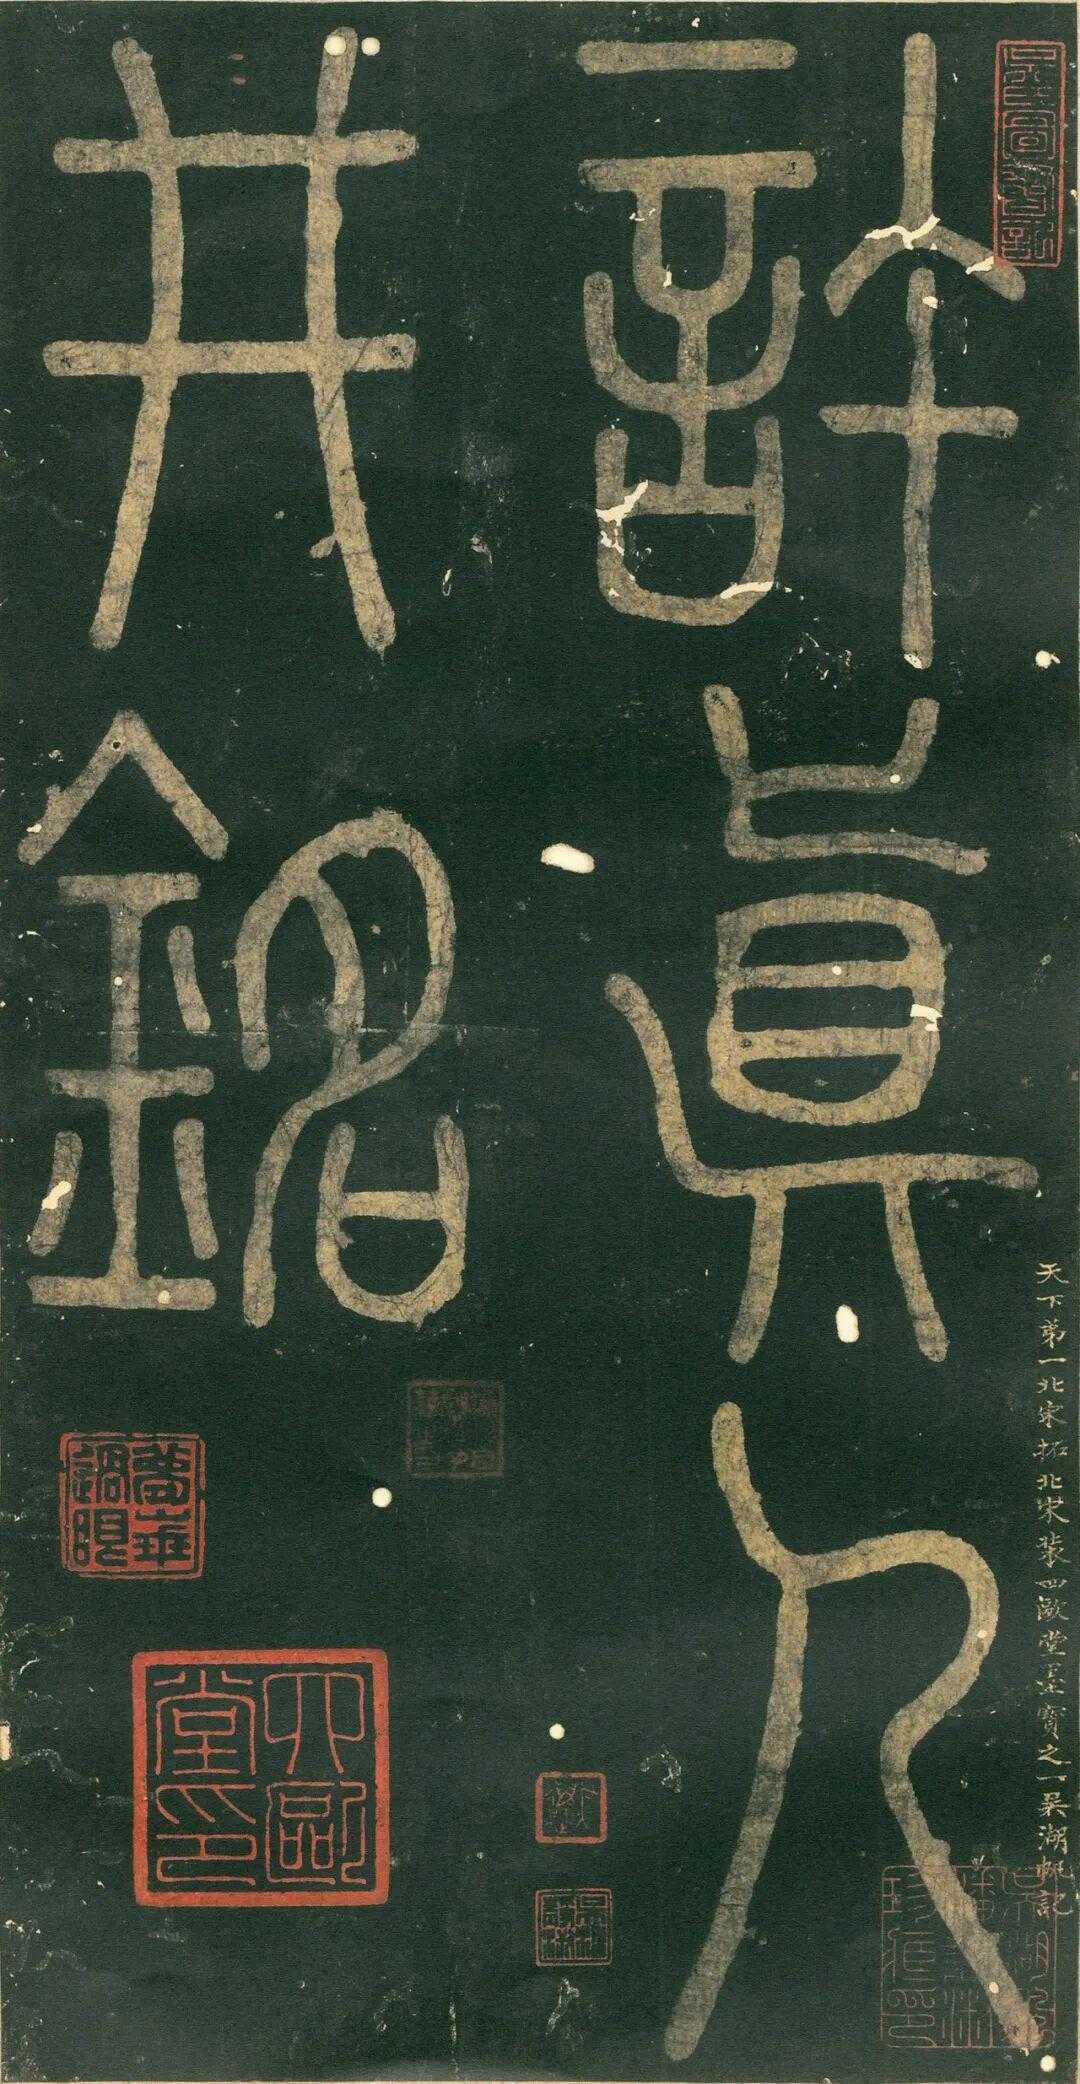 許真人
井銘
天下第一北宋拓北宋裝四歐堂墨寶之一吳湖帆記
四歐堂印